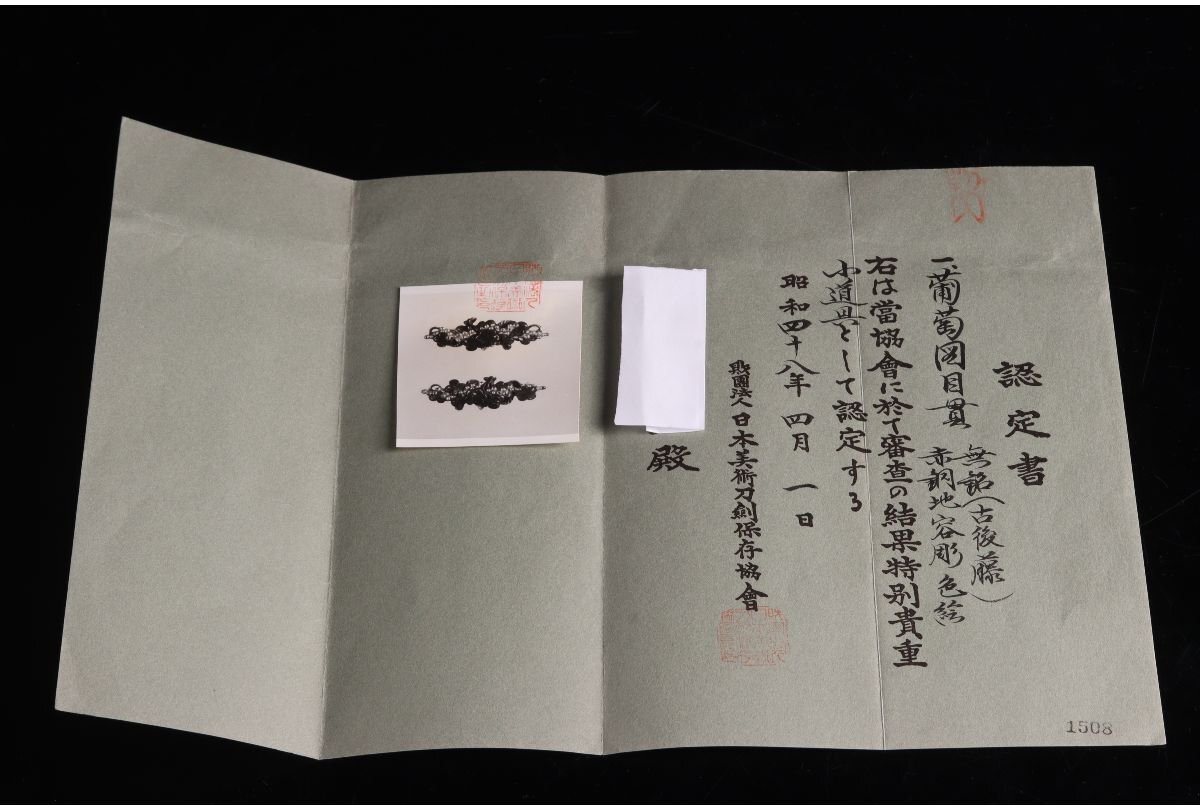 認定書
一、葡萄図目貫
無銘(古後藤)
赤銅地容彫色絵
右は當協會に於て審査の結果特別貴重
小道具として認定する
昭和四十八年 四月 一日
財團法人日本美術刀劍保存協會
殿
1508